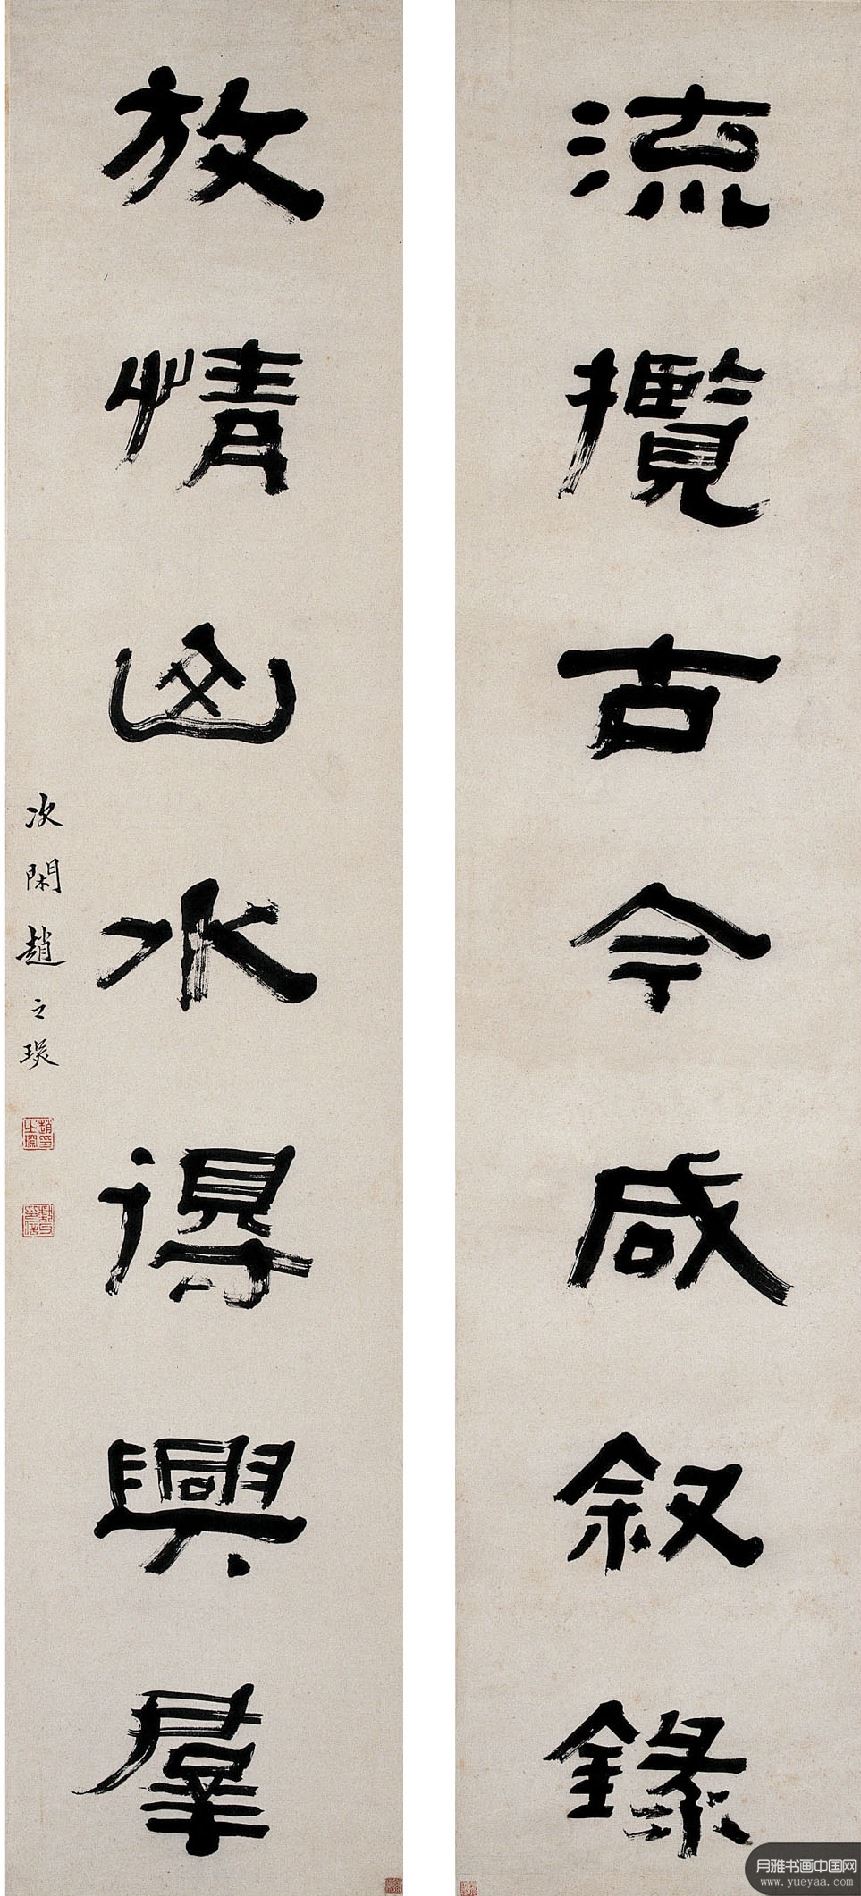 流攬古今咸叙錄
放情山水得興羣
次閑趙之琛
趙之琛印
月雅书画中国网
www.yueyaa.com